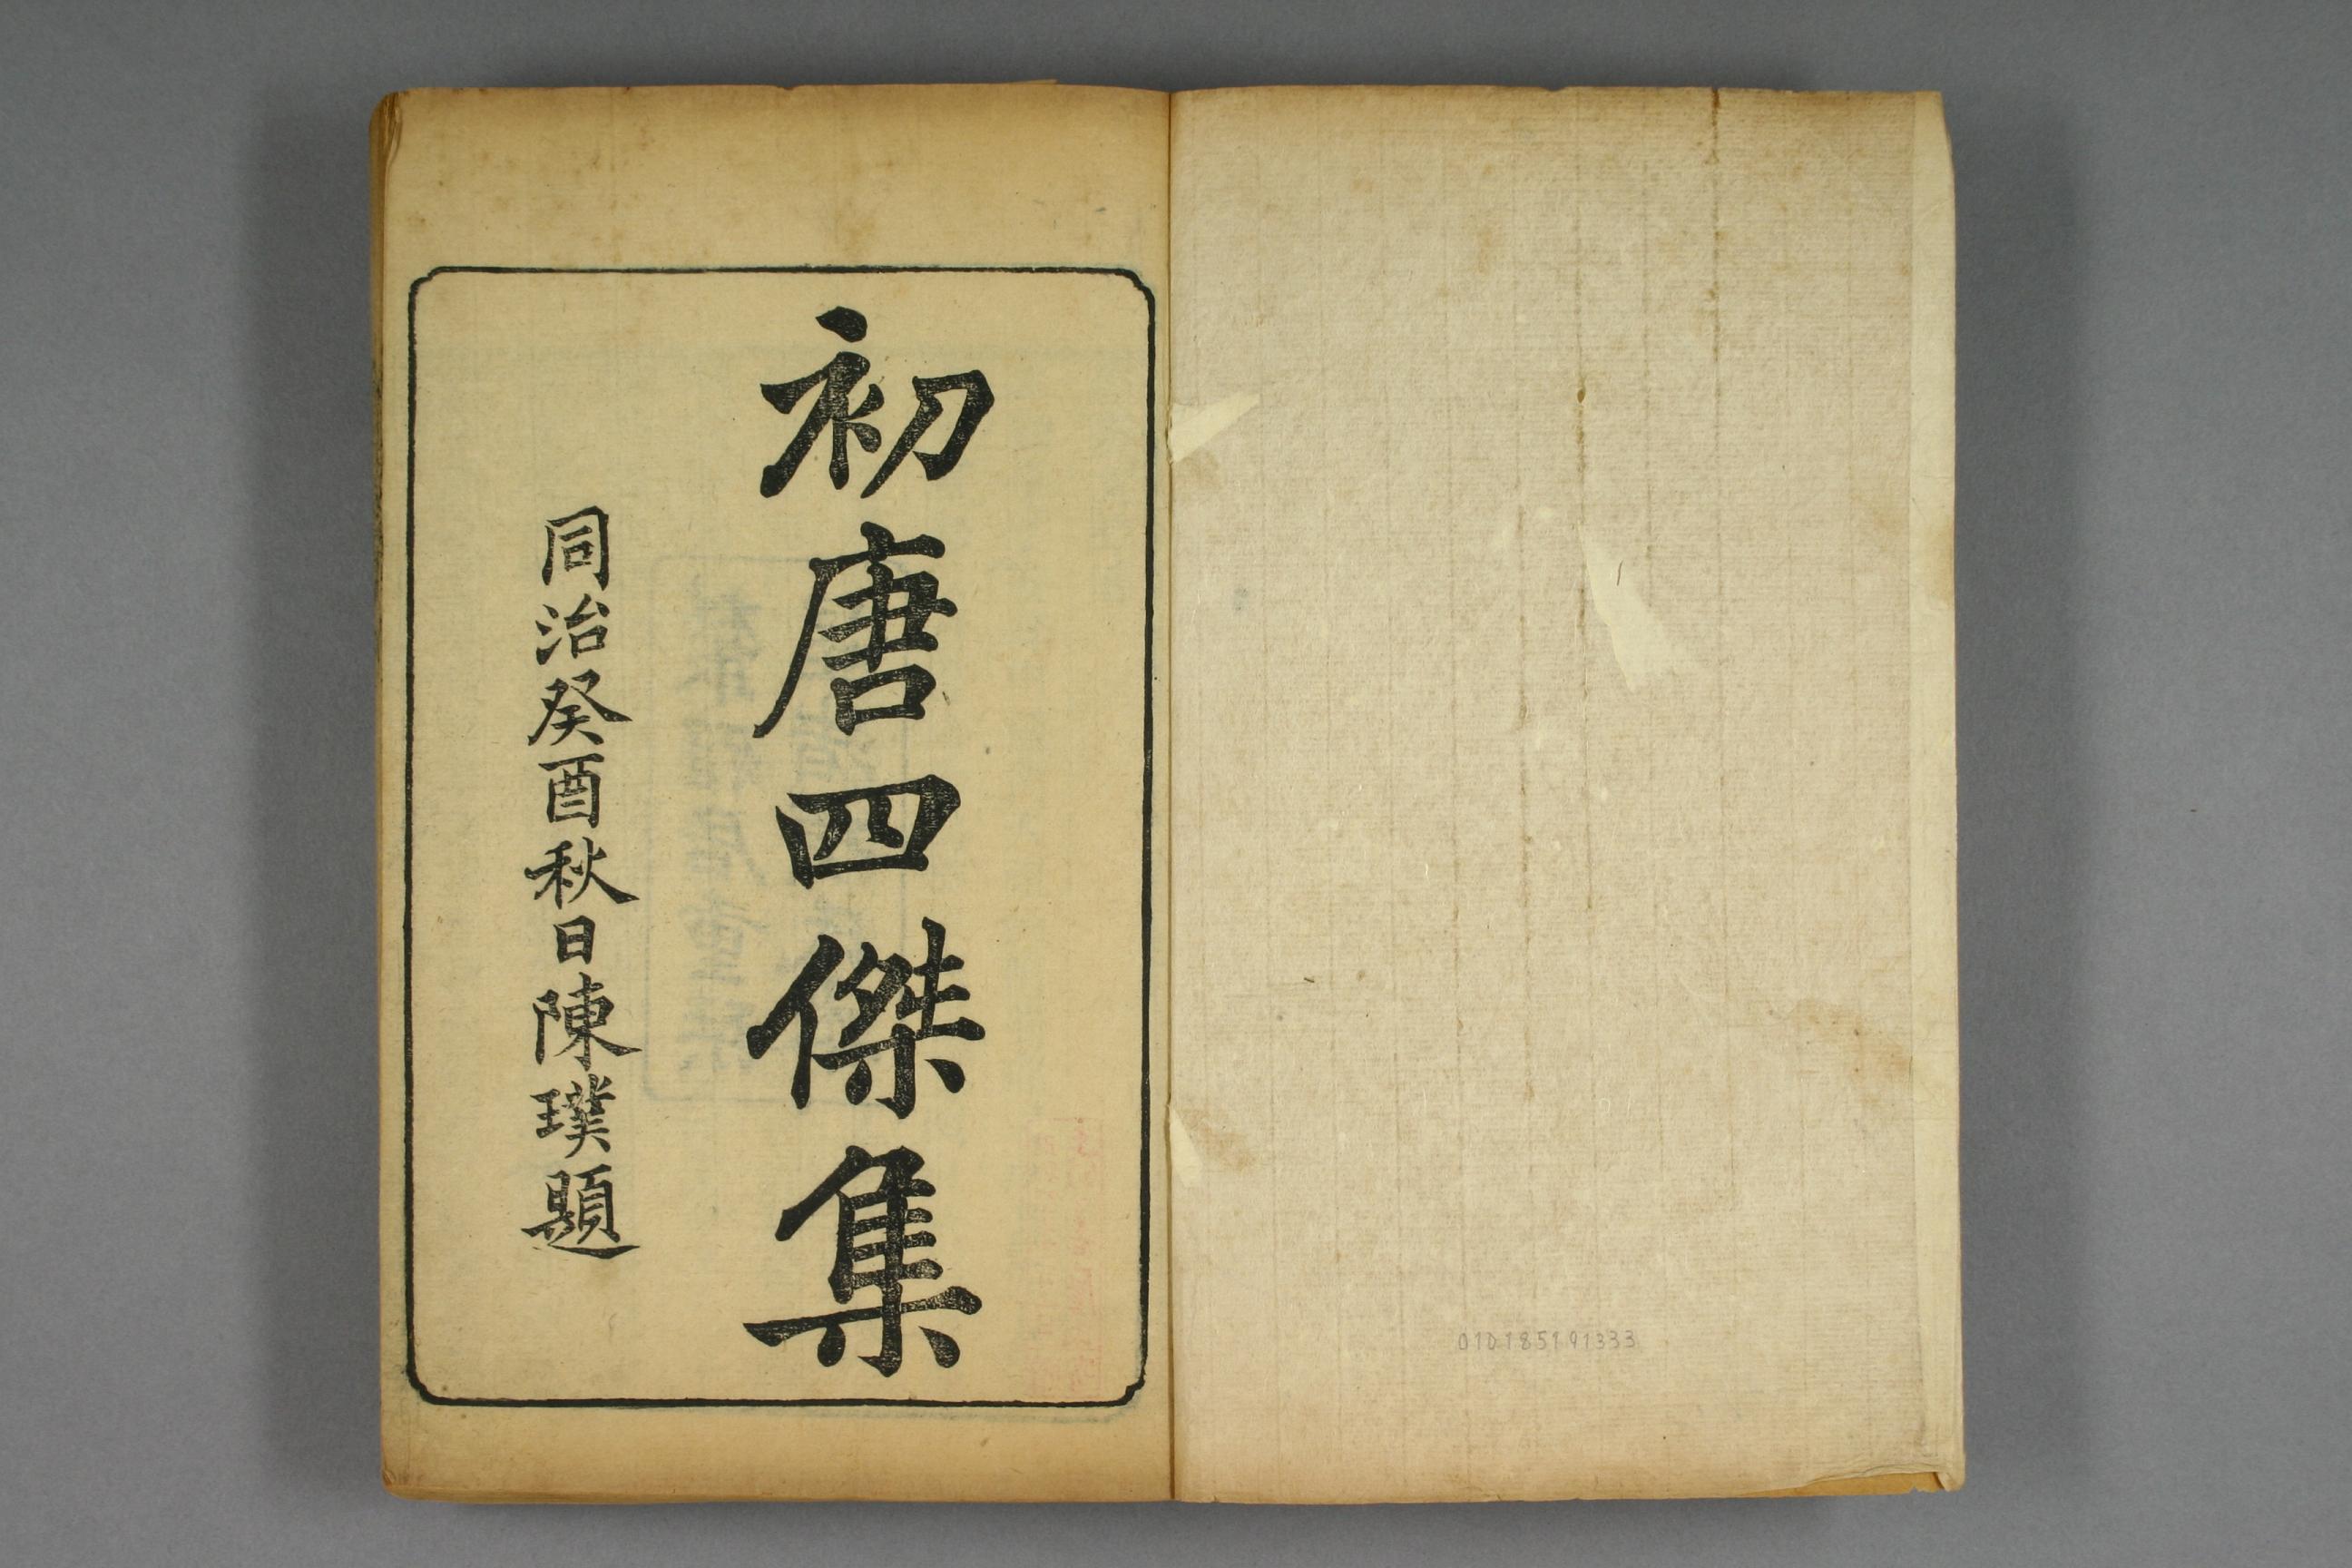 初唐四傑集
同治癸酉秋日陳璞題
010185191333